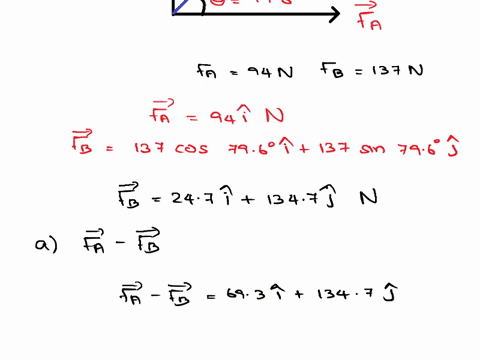 F⃗_A
F_A = 94 N F_B = 137 N
F⃗_A = 94 î N
F⃗_B = 137 cos 79.6° î + 137 sin 79.6° ĵ
F⃗_B = 24.7 î + 134.7 ĵ N
a) F⃗_A - F⃗_B
F⃗_A - F⃗_B = 69.3 î + 134.7 ĵ